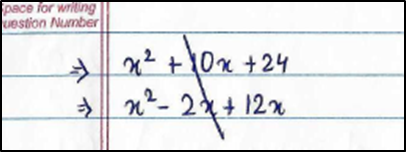 space for writing
uestion Number
⇒ x² + 10x + 24
⇒ x² - 2x + 12x